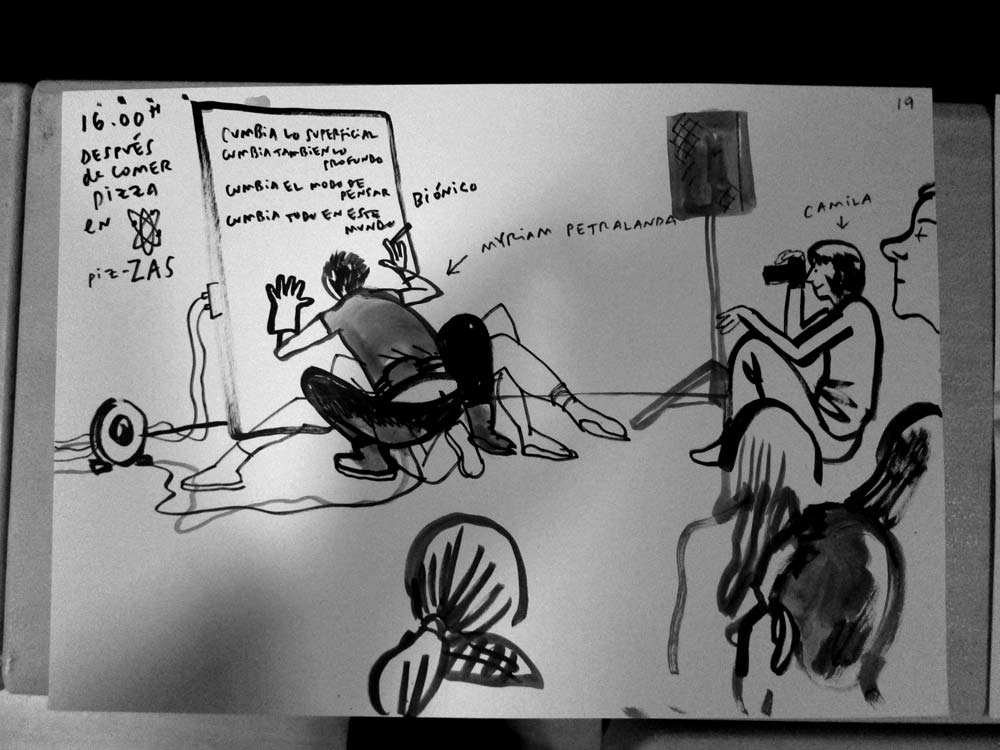 16.00H
DESPUÉS
de COMER
pizza
en
piz-ZAS
CUMBIA LO SUPERFICIAL
CUMBIA TAMBIEN LO
PROFUNDO
CUMBIA EL MODO DE
PENSAR
CUMBIA TODO EN ESTE
MUNDO
BIÓNICO
MYRIAM PETRALANDA
CAMILA
19